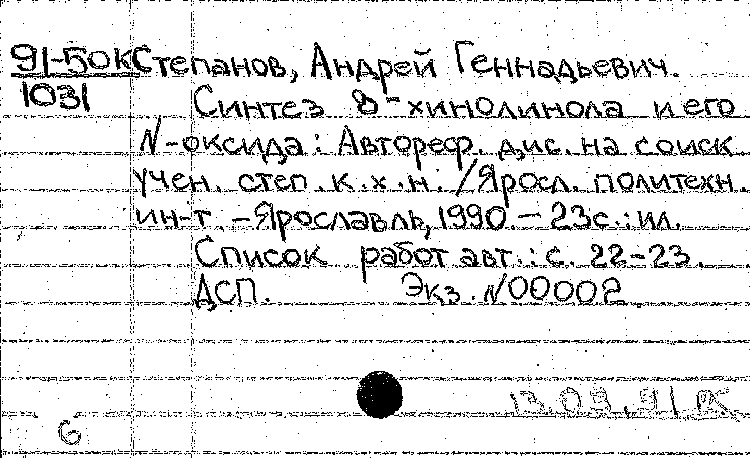 91-50к Степанов, Андрей Геннадьевич.
1031 Синтез 8-хинолинола и его
N-оксида: Автореф. дис. на соиск
учен. степ. к.х.н. /Яросл. политехн.
ин-т. -Ярославль, 1990. - 23с.: ил.
Список работ авт.: с. 22-23.
ДСП. Экз. N00002
13.09.91
6